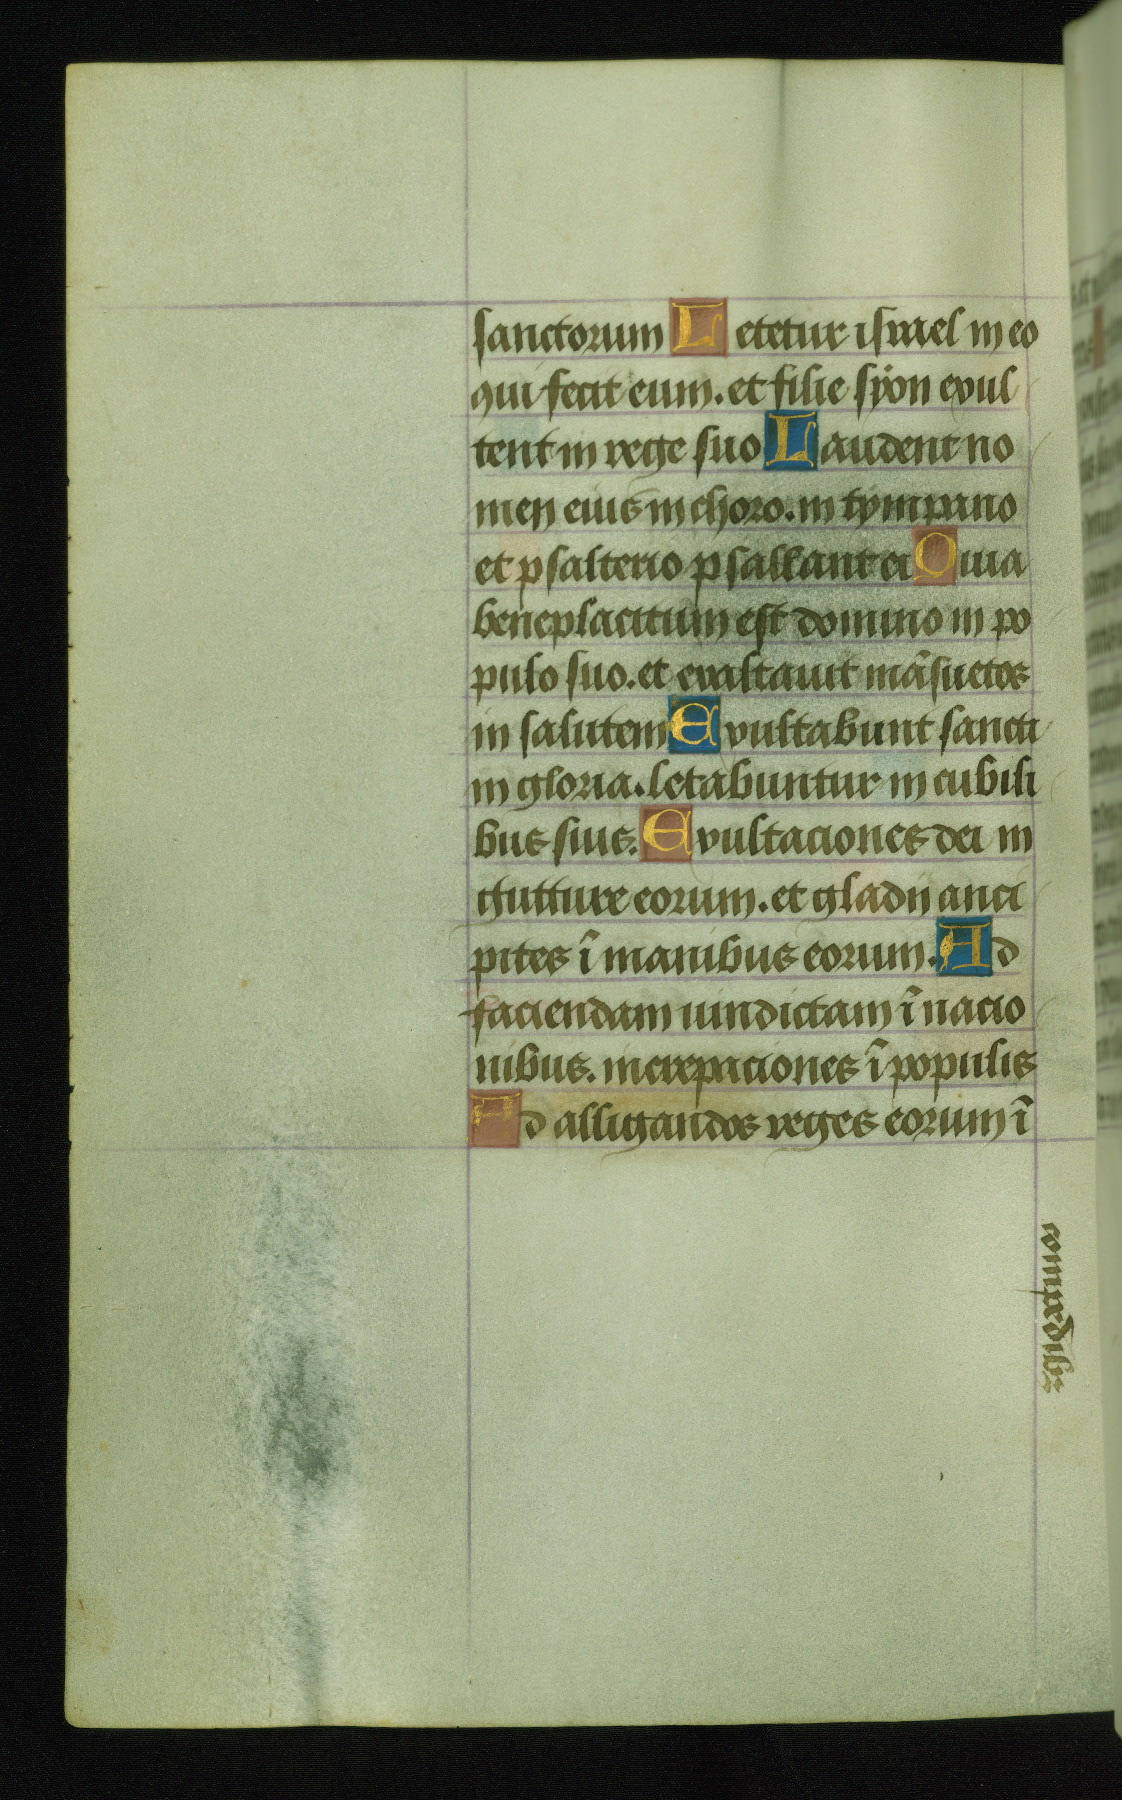 sanctorum Letetur israel in eo
qui fecit eum. et filie syon exul
tent in rege suo Laudent no
men eius in choro. in tympano
et psalterio psallant ei Quia
beneplacitum est domino in po
pulo suo. et exaltauit māsuetos
in salutem Exultabunt sancti
in gloria. letabuntur in cubili
bus suis. Exultaciones dei in
gutture eorum. et gladii anci
pites ī manibus eorum. Ad
faciendam uindictam ī nacio
nibus. increpaciones ī populis
Ad alligandos reges eorum ī
compedibꝫ